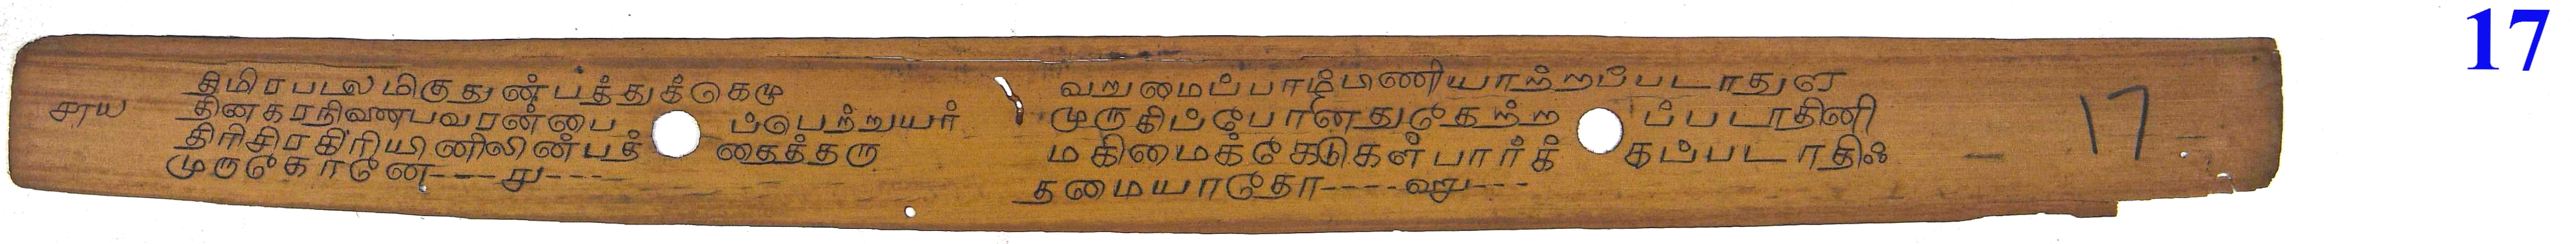 17
திமிரபடலமிகுதுன்பத்துக்கெமு
தினகரநிணைபவரன்பை ப்பெற்றுயர்
திரிசிரகிரியினிலின்பத் தைத்தரு
முருகோனே---று---
வறுமைப்பாம்பணியாற்றப்படாதுள
முருகிப்போனதுகேற்ற ப்படாதினி
மகிமைக்கேடுகள்பார்க் கப்படாதிஃ
தமையாதோ----
17